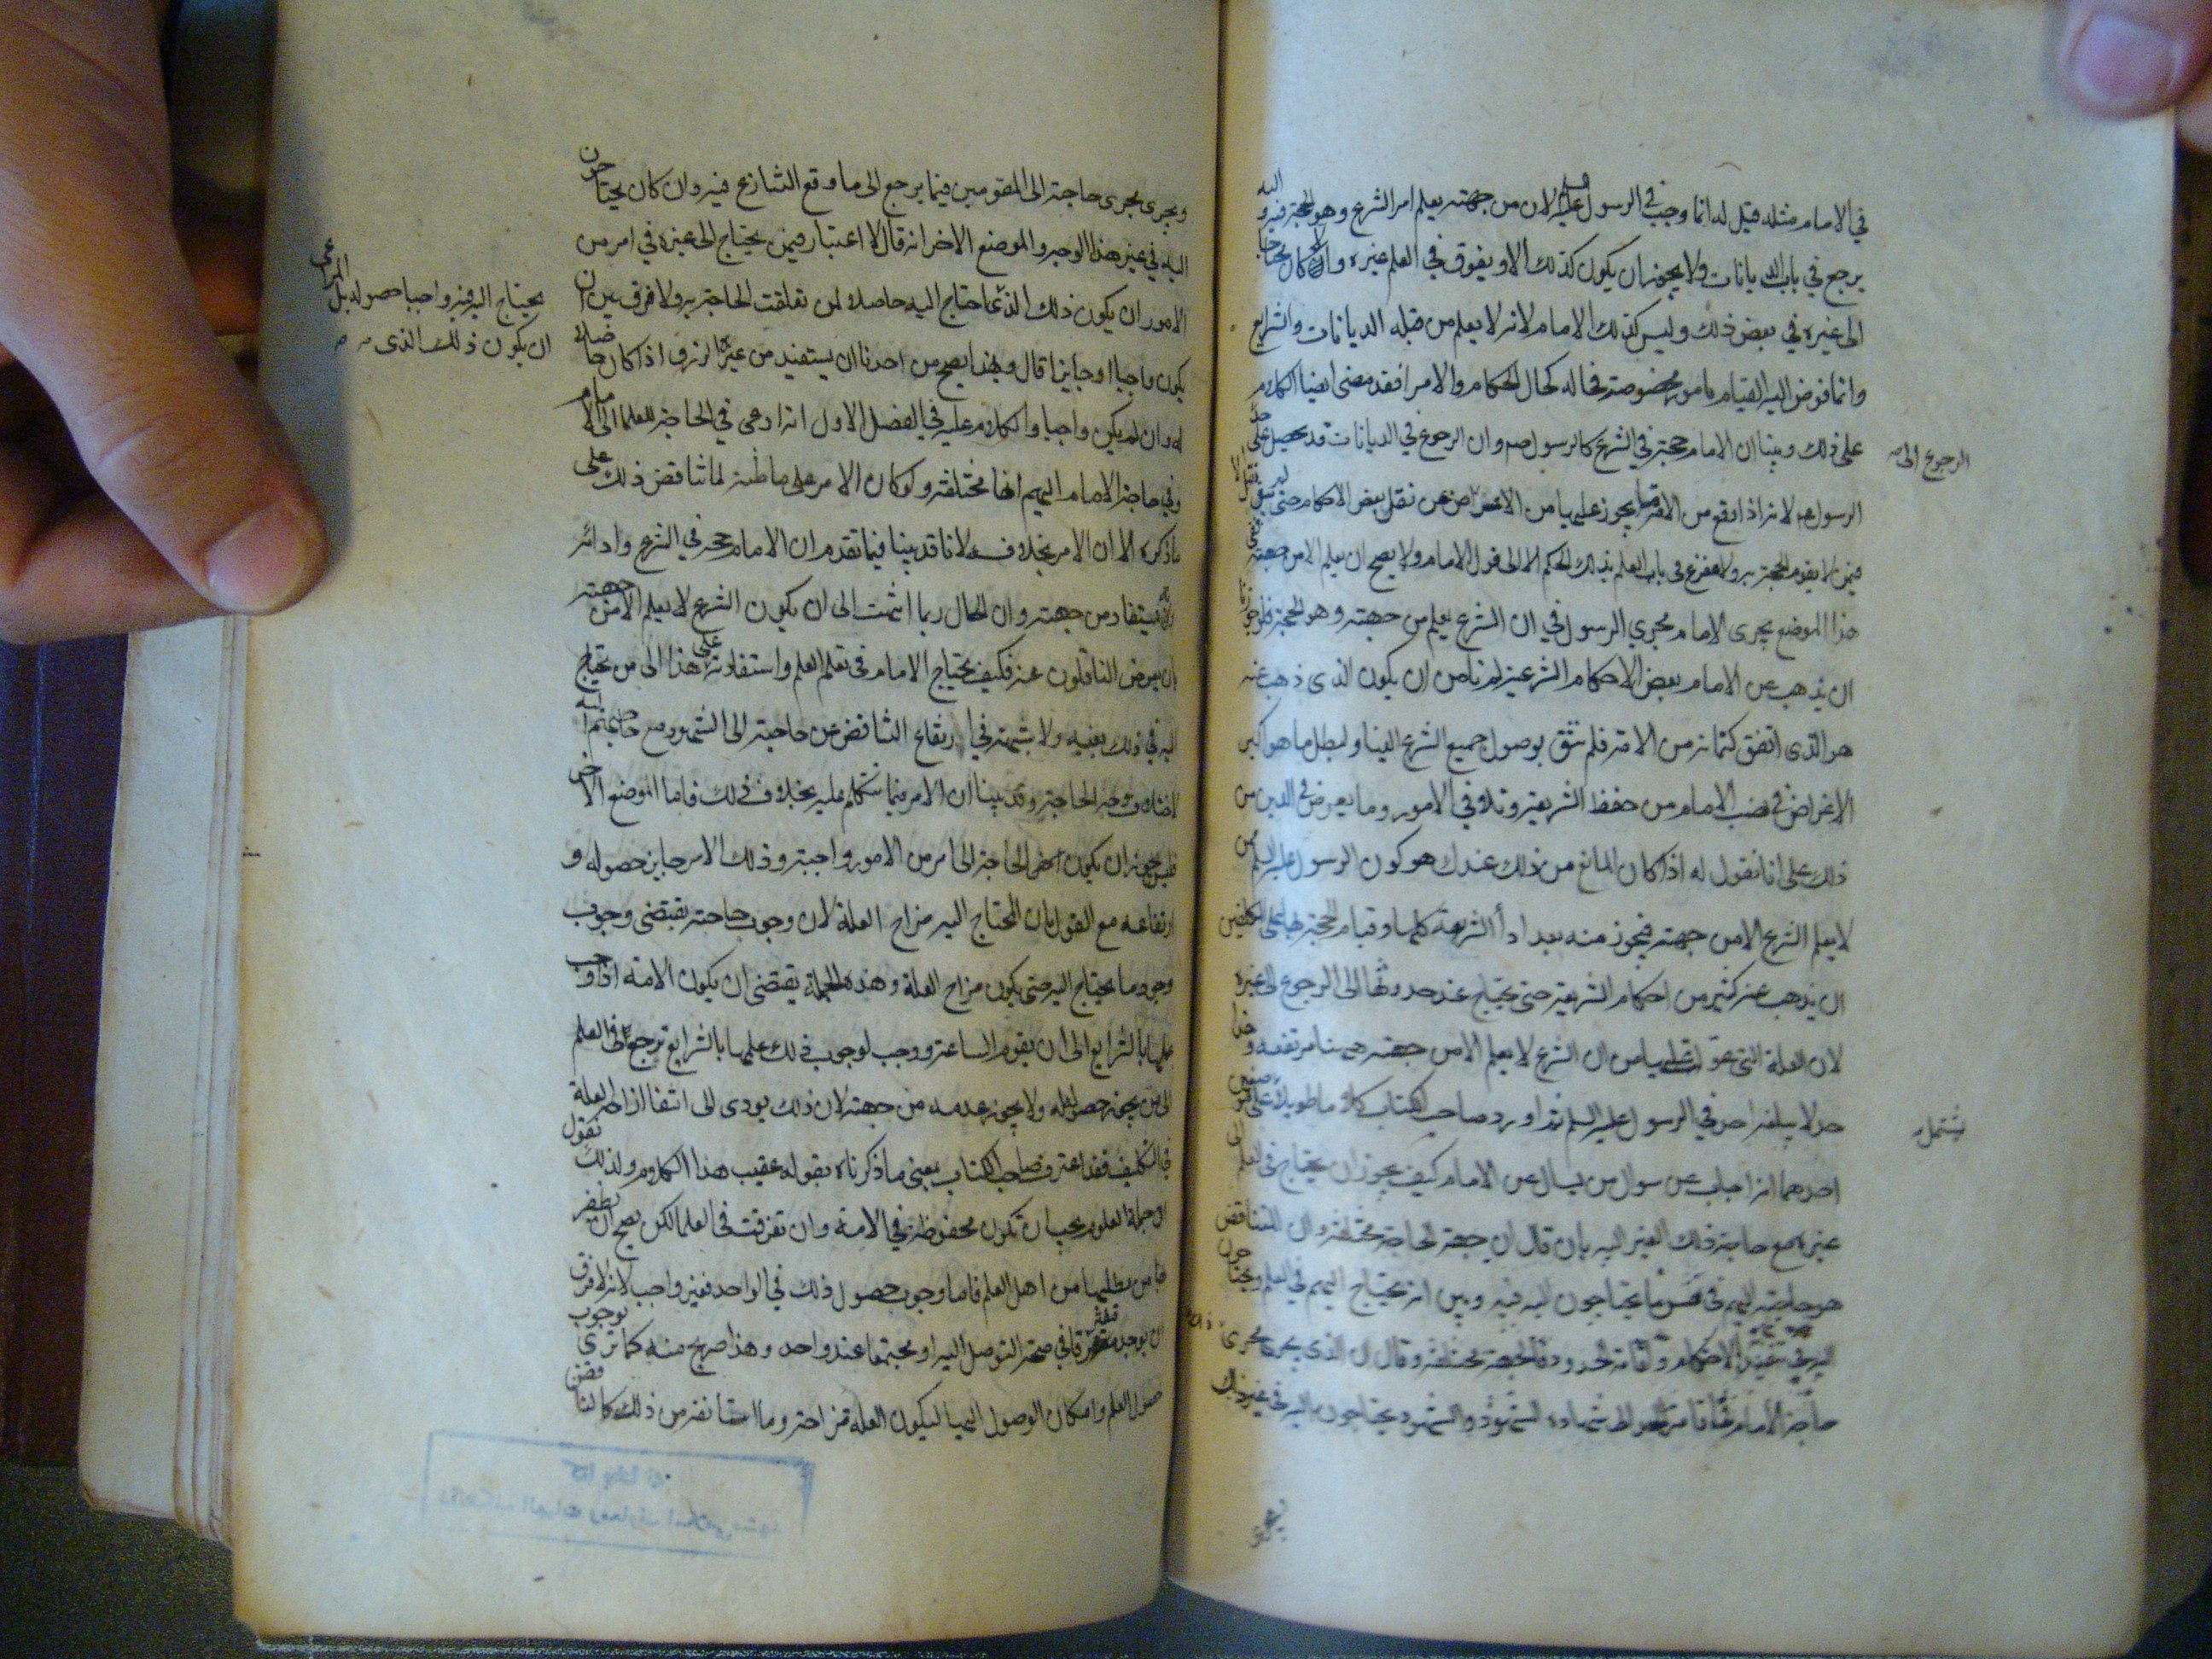 في الامام مثله قيل له انما وجب في الرسول عليه لان من جهته يعلم امر الشرع وهو الحجة فيه واليه
يرجع في باب الديانات ولا يجوز ان يكون كذلك الا ويفوق في العلم غيره وان كان يحتاج
الى غيره في بعض ذلك وليس كذلك الامام لانه لا يعلم من قبله الديانات والشرايع
وانما فوض اليه القيام بامور مخصوصة فحاله كحال الحكام والامرا فقد مضى ايضا الكلام
على ذلك وبينا ان الامام حجة في الشرع كالرسول صم وان الرجوع في الديانات قد يحصل على حد
الرجوع الى
الرسول لانه اذا وقع من الامة ما يجوز عليها من الاعراض عن نقل بعض الاحكام حتى
فيمن لا يقوم الحجة به ولا مفزع في باب العلم بذلك الحكم الا الى قول الامام ولا يصح ان يعلم الا من جهته
هذا الموضع يجرى الامام مجرى الرسول في ان الشرع يعلم من جهته وهو الحجة فلو جوزنا
ان يذهب عن الامام بعض الاحكام الشرعية لم نامن ان يكون الذى ذهب عنه
هو الذى اتفق كتمانه من الامة فلم نثق بوصول جميع الشرع الينا ولبطل ما هو اكبر
الاغراض في نصب الامام من حفظ الشريعة وتلافي الامور وما يعرض في الدين من
ذلك على انا نقول له اذا كان المانع من ذلك عندك هو كون الرسول عليه السلم ممن
لا يعلم الشرع الا من جهته فيجوز منه بعد ادأ الشريعة كلها وقيام الحجة بها على المكلفين
ان يذهب عنه كثير من احكام الشريعة حتى يحتاج عند حدوثها الى الرجوع الى غيره
لان العلة التى عولت عليها من ان الشرع لا يعلم الا من جهته ههنا مرتفعة وهذا
حد لا يبلغه احد في الرسول عليه السلم ثم اورد صاحب الكتاب كلاما طويلا على موضعين
يشتمل
احدهما انه اجاب عن سوال من يسال عن الامام كيف يجوز ان يحتاج في العلم الى
غيره مع حاجة ذلك الغير اليه بان قال ان جهة الحاجة مختلفة وان المتناقض
هو حاجته اليهم في نفس ما يحتاجون اليه فيه وبين انه يحتاج اليهم في العلم ويحتاجون
اليه في تنفيذ الاحكام واقامة الحدود فالجهة مختلفة وقال ان الذى يجرى مجرى
حاجة الامام في اقامة الحد الى شهادة الشهود والشهود يحتاجون اليه في غير ذلك
ويجرى
ويجرى مجرى حاجته الى المقومين فيما يرجع الى ما وقع التنازع فيه وان كان يحتاجون
اليه في غير هذا الوجه والموضع الاخر انه قال لا اعتبار فيمن يحتاج الى غيره في امر من
الامور ان يكون ذلك الذى احتاج اليه حاصلا لمن تعلقت الحاجة به ولا فرق بين ان
يحتاج اليه فيه واجبا حصوله بل المراعى
ان يكون ذلك الذى
يكون واجبا او جايزا قال ولهذا يصح من احدنا ان يستفيد من غيره الرزق اذا كان حاصلا
له وان لم يكن واجبا والكلام عليه في الفصل الاول انه ادعى في الحاجة للعلما الى الامام
وفي حاجة الامام اليهم انها مختلفة ولو كان الامر على ما ظنه لما تناقض ذلك على
ما ذكره الا ان الامر بخلافه لانا قد بينا فيما تقدم ان الامام حجة في الشرع وادائه
وانه يستفاد من جهته وان الحال ربما انتهت الى ان يكون الشرع لا يعلم الا من جهته
ان يعرض الناقلون عنه فكيف يحتاج الامام في تعلم العلم واستفادته على هذا الى من يحتاج
اليه في ذلك بعينه ولا شبهة في ارتفاع التناقض عن حاجته الى الشهود مع حاجتهم اليه
لاختلاف وجه الحاجة وقد بينا ان الامر فيما نتكلم عليه بخلاف ذلك فاما الموضع الاخر
فليس يجوز ان يكون الحاجة الى امر من الامور واجبة وذلك الامر جايز حصوله و
ارتفاعه مع القول بان المحتاج اليه مزاح العلة لان وجوب حاجته يقتضى وجوب
وجود ما يحتاج اليه حتى يكون مزاح العلة وهذه الجملة يقتضى ان يكون الامة اذا وجب
علمها بالشرايع الى ان يقوم الساعة ووجب لوجوب ذلك علمها بالشرايع ترجع في العلم
الى من يجوز حصوله ولا يجوز عدمه من جهته لان ذلك يودى الى انتفا ازاحة العلة
في التكليف فقد اعترف صاحب الكتاب بمعنى ما ذكرناه بقوله عقيب هذا الكلام ولذلك نقول
ان جملة العلوم يجب ان تكون محفوظة في الامة وان تفرقت في العلما لكن يصح ان يظفر
بها من يطلبها من اهل العلم فاما وجوب حصول ذلك في الواحد فغير واجب لانه لا فرق
ان يوجد متفرقا في صحة التوصل اليه او مجتمعا عند واحد وهذا صريح منه كما ترى بوجوب
حصول العلم وامكان الوصول اليها ليكون العلة مزاحة وما استانفه من ذلك كالناقض